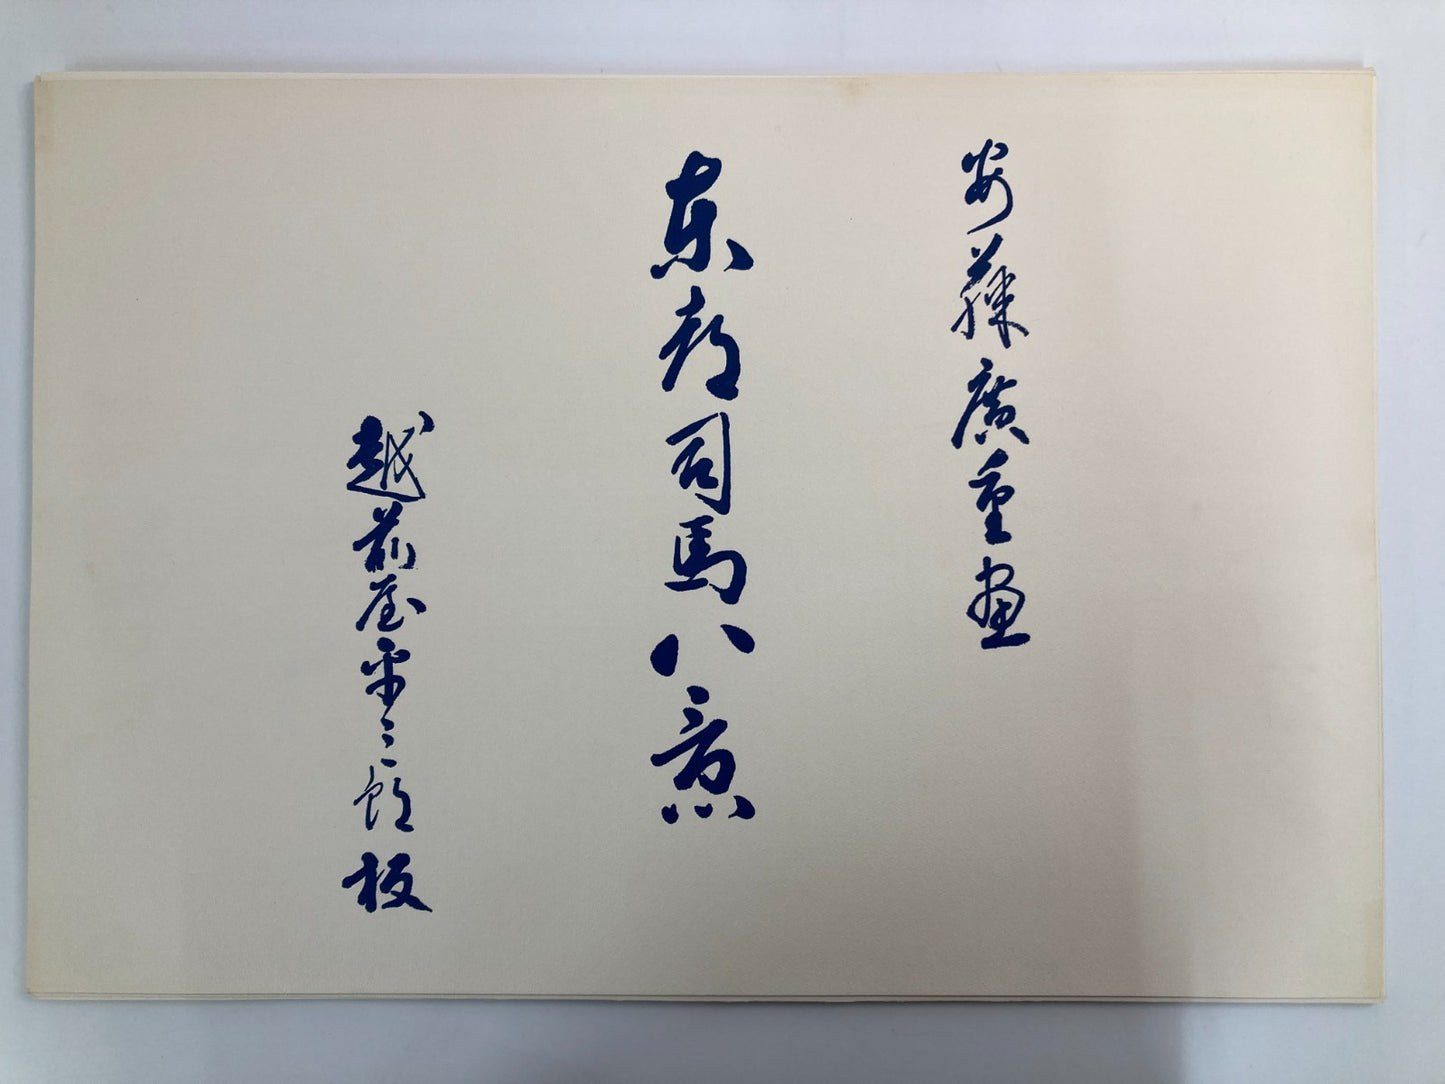 安藤廣重画
东都司馬八景
越前屋平三郎板